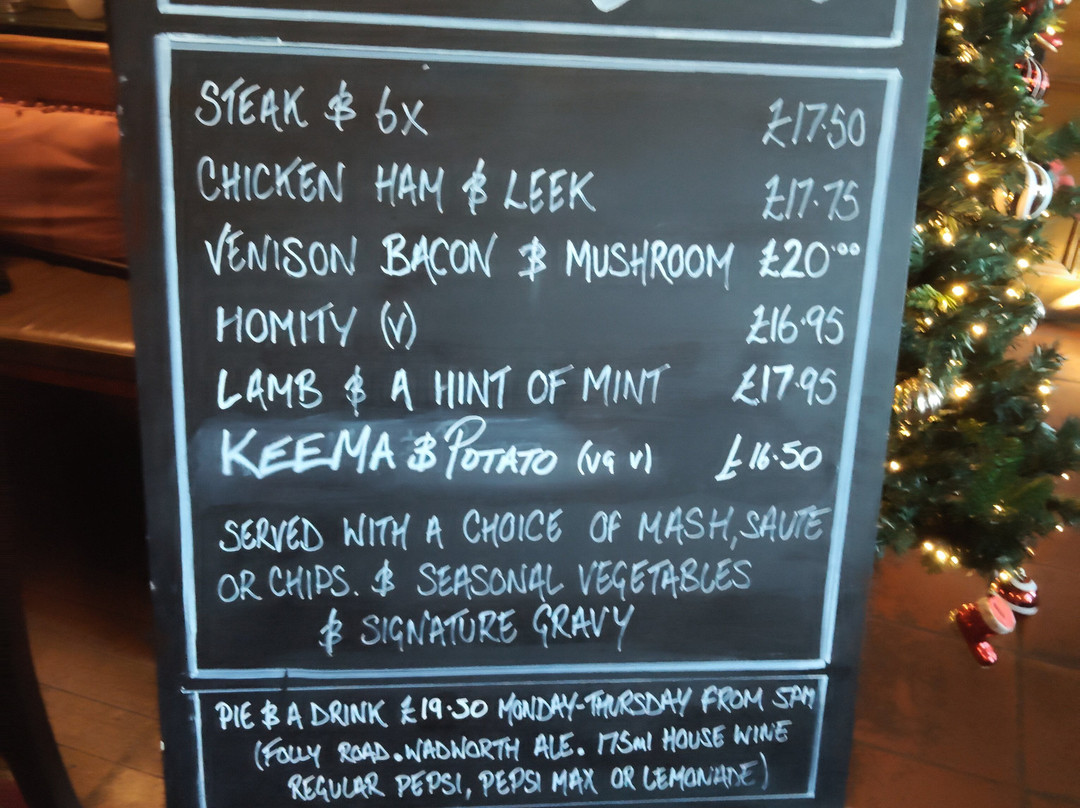 STEAK & 6X £17.50
CHICKEN HAM & LEEK £17.75
VENISON BACON & MUSHROOM £20.00
HOMITY (V) £16.95
LAMB & A HINT OF MINT £17.95
KEEMA & POTATO (VG V) £16.50
SERVED WITH A CHOICE OF MASH, SAUTE
OR CHIPS. & SEASONAL VEGETABLES
& SIGNATURE GRAVY
PIE & A DRINK £19.50 MONDAY-THURSDAY FROM 5PM
(FOLLY ROAD. WADWORTH ALE. 175ml HOUSE WINE
REGULAR PEPSI, PEPSI MAX OR LEMONADE)